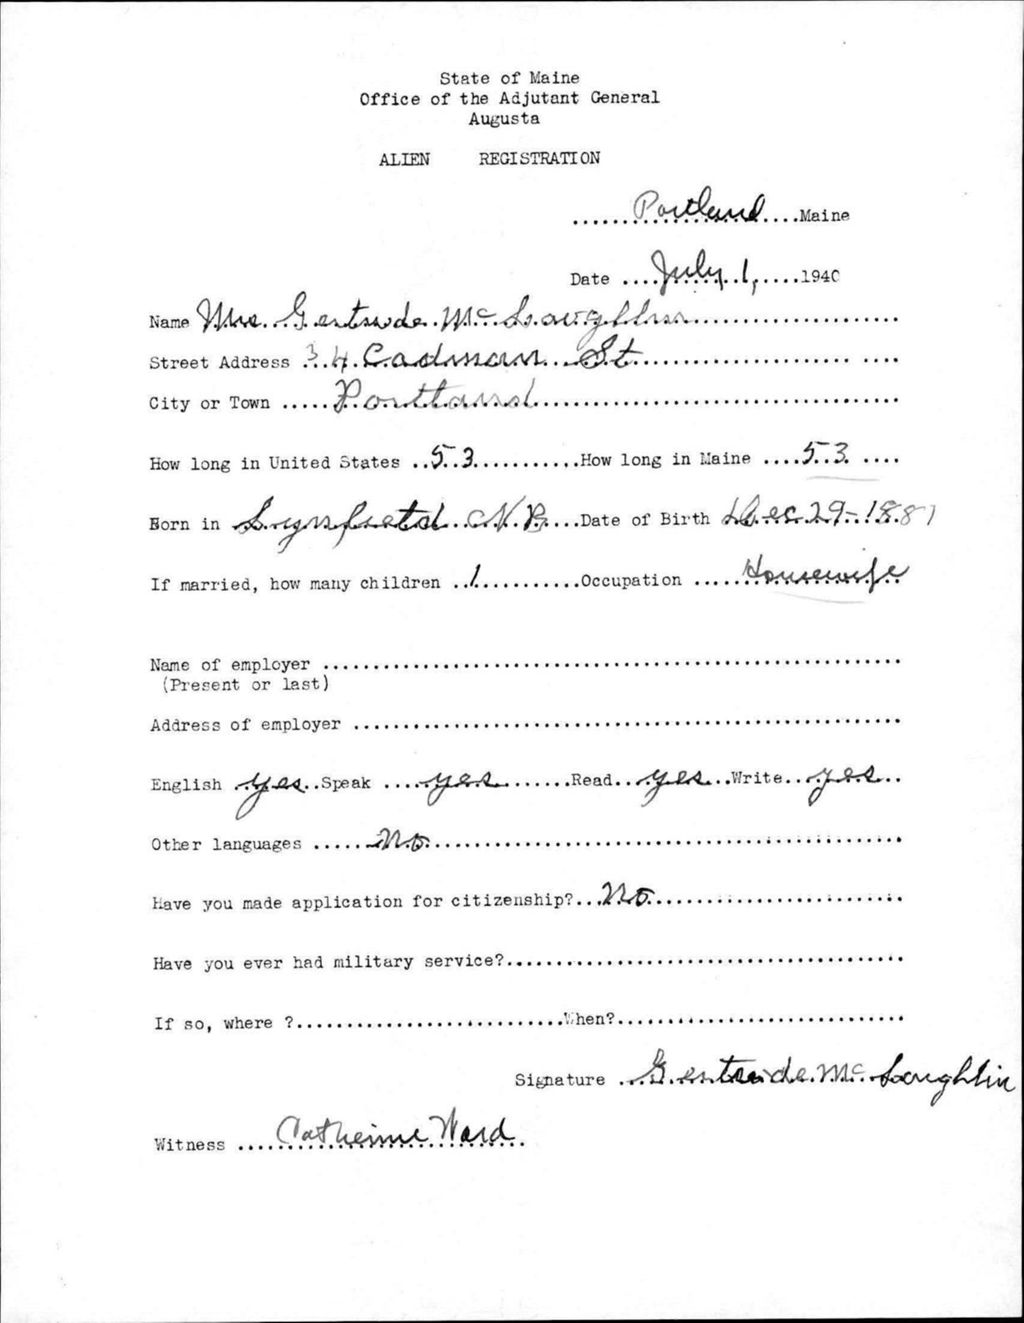 State of Maine
Office of the Adjutant General
Augusta
ALIEN REGISTRATION
Portland Maine
Date July 1, 1940
Name Mrs. Gertrude McLoughlin
Street Address 34 Cadman St
City or Town Portland
How long in United States 53 How long in Maine 53
Born in Lynfield N.B. Date of Birth Dec 29-1881
If married, how many children 1 Occupation Housewife
Name of employer
(Present or last)
Address of employer
English yes Speak yes Read yes Write yes
Other languages No
Have you made application for citizenship? No
Have you ever had military service?
If so, where ? When?
Signature Gertrude McLoughlin
Witness Catherine Ward